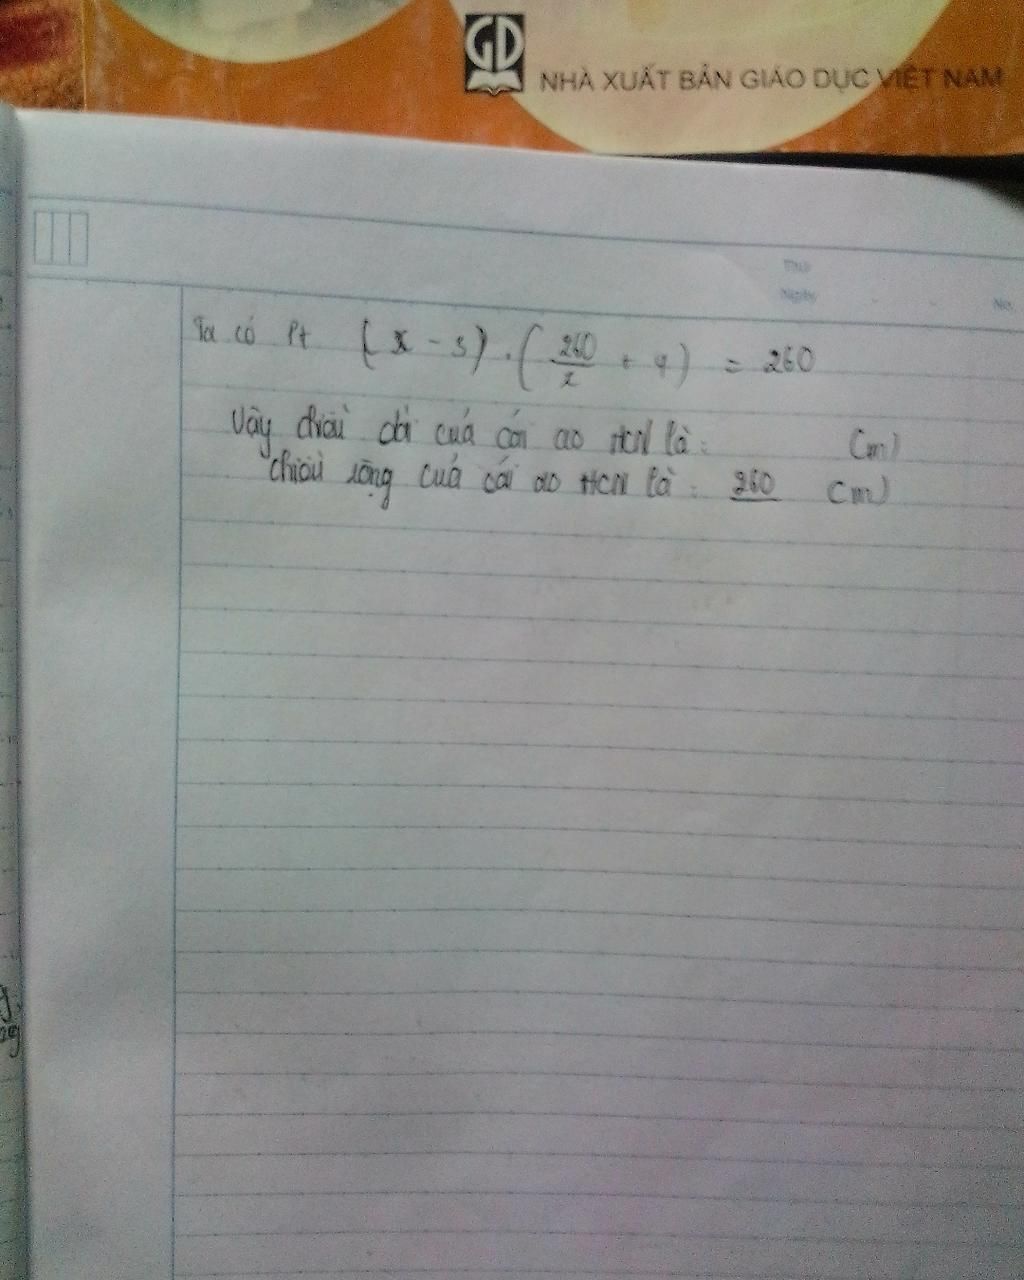 GD
NHÀ XUẤT BẢN GIÁO DỤC VIỆT NAM
Thứ
Ngày
No.
Ta có Pt (x - 3) . ( 260/x + 4 ) = 260
Vậy chiều dài cuả cái ao HCN là : (m)
chiều rộng cuả cái ao HCN là : 260 (m)